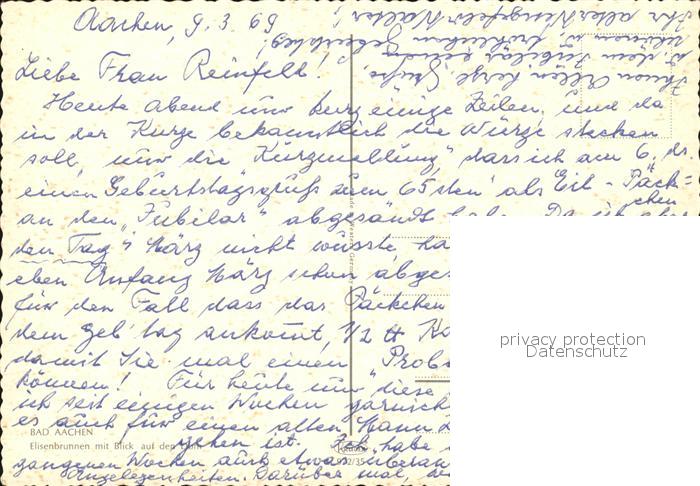 Aachen, 9. 3. 69
Liebe Frau Reinfelt!
Heute abend nur kurz einige Zeilen, und da
in der Kürze bekanntlich die Würze stecken
soll, nur die "Kurzmeldung" dass ich am 6. ds.
einen Geburtstagsgruß zum 65sten als Eil-Päck-
chen
an den "Jubilar" abgesandt habe. Da ich aber
den Tag i/ März nicht wusste ha
eben Anfang März schon abges
für den Fall dass das Päckchen
dem Geb'tag ankommt, 1/2 ℔ Ka
damit Sie mal einen "Probe
können! Für heute nur "diese
ich seit einigen Wochen garnich
es auch für einen alten Mann
BAD AACHEN
gehen ist. Ich habe
Elisenbrunnen mit Blick auf den Dom
gangenen Wochen auch etwas überan
Angelegenheiten. Darüber mal,
Ihnen Allen herzl. Grüße,
u. dem Jubilar einen
schönen u. fröhlichen Geburtstag!
Ihr alter Walter!
privacy protection
Datenschutz